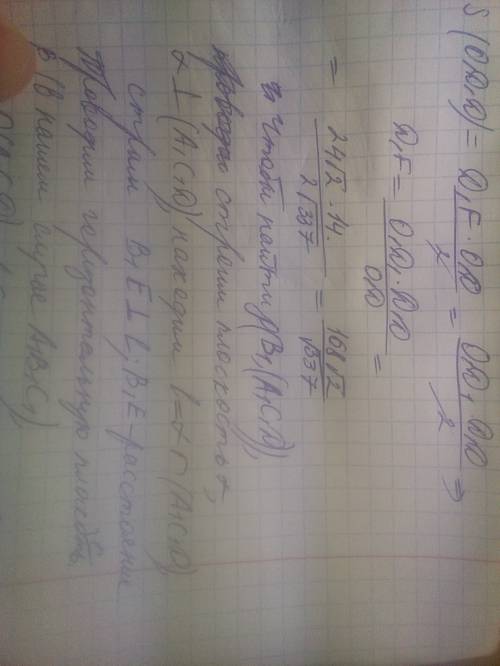 S (OD₁D) = D₁F · OD / 2 = DD₁ · D₁O / 2 ⇒
D₁F = DD₁ · D₁O / OD =
= 24√2 · 14 / 2√337 = 168√2 / √337
чтобы найти ρ(B₁, (A₁C₁D)),
строим плоскость α,
α ⊥ (A₁C₁D), находим l = α ∩ (A₁C₁D),
строим B₁E ⊥ l; B₁E - расстояние
Проводим горизонтальную плоскость
(В нашем случае A₁B₁C₁)